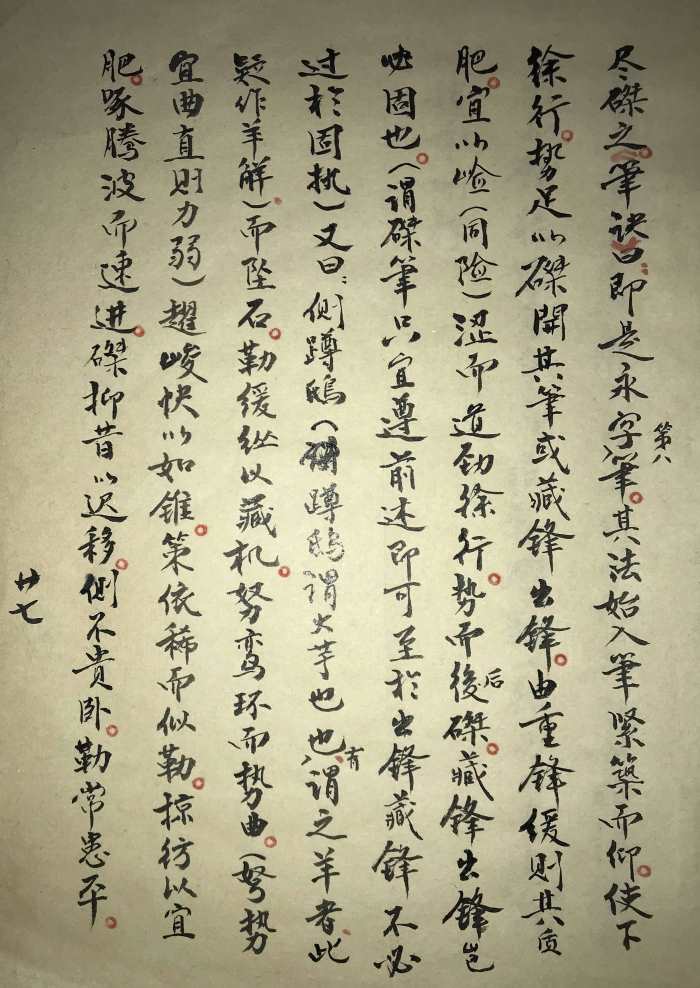 尽磔之。筆诀曰：即是永字第八筆。其法始入筆緊築而仰。使下
徐行。势足以磔開其筆或藏鋒出鋒。由重鋒缓則其质
肥。宜以嶮（同险）涩而遒劲徐行。势而後后磔。藏鋒出鋒岂
必固也。（谓磔筆只宜遵前述即可至於出鋒藏鋒不必
过於固执）又曰：側蹲鴟（蹲鴟谓大芋也也有謂之羊者此
疑作羊解）而坠石。勒缓纵以藏机。努弯环而势曲。（弩势
宜曲直則力弱）趯峻快以如锥。策依稀而似勒。掠彷以宜
肥。啄腾波而速进。磔抑昔以迟移。側不贵卧。勒常患平。
廿七